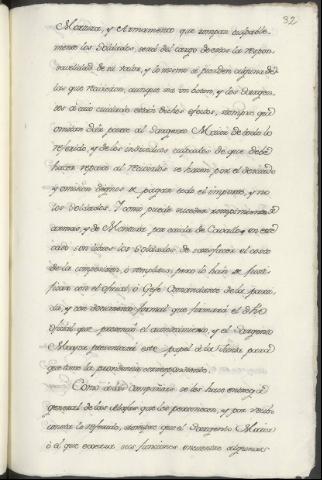 32
Montura, y Armamento que rompan culpable-
mente los Soldados, será del cargo de estos la respon-
savilidad de su valor, y lo mismo si pierden alguna de
las que recivieron, aunque sea un boton, y los Sargen-
tos á cuio cuidado estén dichos efectos, siempre que
omitan dár parte al Sargento Mayor de todo lo
referido, y de los individuos culpados de que debe
hacer reparo al
y omision dignos de pagar todo el importe, y no
los Soldados. Y como puede suceder rompimiento de
armas, y de Montura por caida de Cavallo, en este
caso son libres los Soldados de satisfacer el costo
de la composicion, ó remplazo, pero lo hán de justi-
ficar con el oficial, ó Gefe Comandante de la para-
da, y con documento formal que firmará el
oficial que presenció el acontecimiento, y el Sargento
Mayor presentará este papel á la Junta para
que tome la providencia correspondiente.
Como á las Compañias se les hace entrega
general de las Alajas que les pertenecen, y por recivo
consta lo referido, siempre que el Sargento Mayor
ó el que exerza sus funciones encuentre algunas